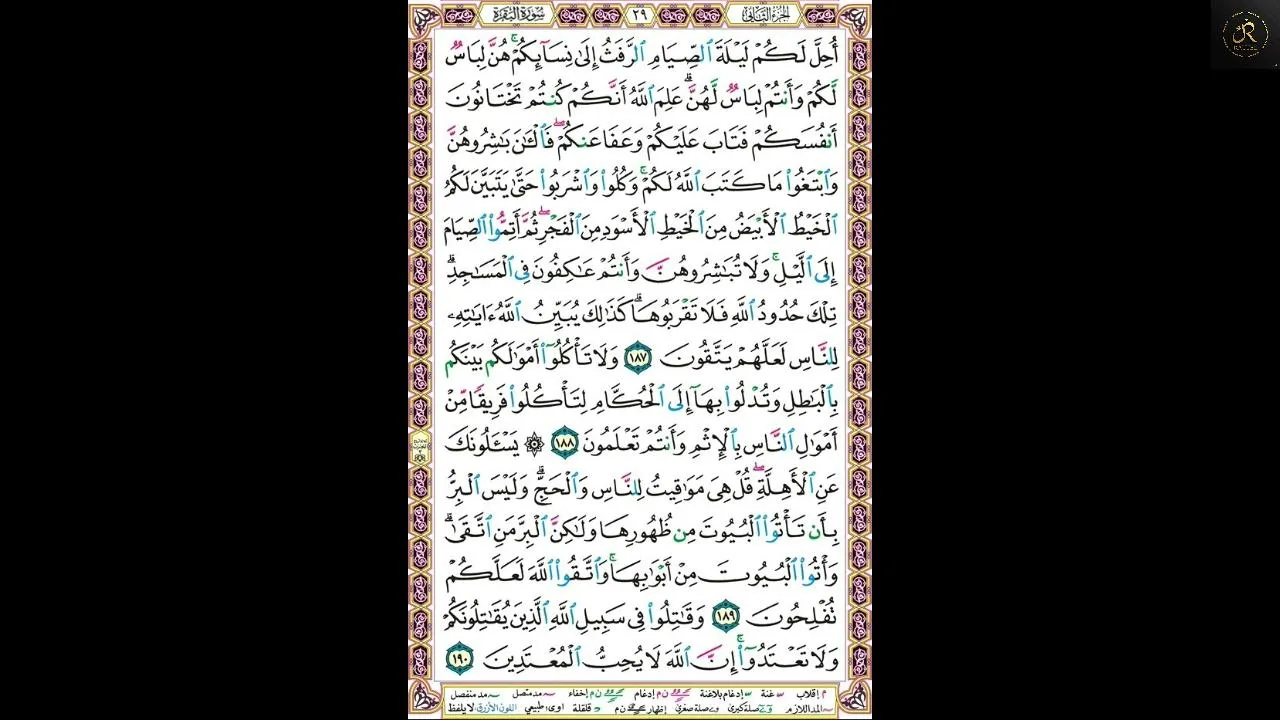 الجزء الثاني
٢٩
سورة البقرة
أُحِلَّ لَكُمْ لَيْلَةَ ٱلصِّيَامِ ٱلرَّفَثُ إِلَىٰ نِسَآئِكُمْ ۚ هُنَّ لِبَاسٌ
لَّكُمْ وَأَنتُمْ لِبَاسٌ لَّهُنَّ ۗ عَلِمَ ٱللَّهُ أَنَّكُمْ كُنتُمْ تَخْتَانُونَ
أَنفُسَكُمْ فَتَابَ عَلَيْكُمْ وَعَفَا عَنكُمْ ۖ فَٱلْـَٔـٰنَ بَـٰشِرُوهُنَّ
وَٱبْتَغُوا۟ مَا كَتَبَ ٱللَّهُ لَكُمْ ۚ وَكُلُوا۟ وَٱشْرَبُوا۟ حَتَّىٰ يَتَبَيَّنَ لَكُمُ
ٱلْخَيْطُ ٱلْأَبْيَضُ مِنَ ٱلْخَيْطِ ٱلْأَسْوَدِ مِنَ ٱلْفَجْرِ ۖ ثُمَّ أَتِمُّوا۟ ٱلصِّيَامَ
إِلَى ٱلَّيْلِ ۚ وَلَا تُبَـٰشِرُوهُنَّ وَأَنتُمْ عَـٰكِفُونَ فِى ٱلْمَسَـٰجِدِ ۗ
تِلْكَ حُدُودُ ٱللَّهِ فَلَا تَقْرَبُوهَا ۗ كَذَٰلِكَ يُبَيِّنُ ٱللَّهُ ءَايَـٰتِهِۦ
لِلنَّاسِ لَعَلَّهُمْ يَتَّقُونَ ١٨٧ وَلَا تَأْكُلُوٓا۟ أَمْوَٰلَكُم بَيْنَكُم
بِٱلْبَـٰطِلِ وَتُدْلُوا۟ بِهَآ إِلَى ٱلْحُكَّامِ لِتَأْكُلُوا۟ فَرِيقًا مِّنْ
أَمْوَٰلِ ٱلنَّاسِ بِٱلْإِثْمِ وَأَنتُمْ تَعْلَمُونَ ١٨٨ ۞ يَسْـَٔلُونَكَ
عَنِ ٱلْأَهِلَّةِ ۖ قُلْ هِىَ مَوَٰقِيتُ لِلنَّاسِ وَٱلْحَجِّ ۗ وَلَيْسَ ٱلْبِرُّ
بِأَن تَأْتُوا۟ ٱلْبُيُوتَ مِن ظُهُورِهَا وَلَـٰكِنَّ ٱلْبِرَّ مَنِ ٱتَّقَىٰ ۗ
وَأْتُوا۟ ٱلْبُيُوتَ مِنْ أَبْوَٰبِهَا ۚ وَٱتَّقُوا۟ ٱللَّهَ لَعَلَّكُمْ
تُفْلِحُونَ ١٨٩ وَقَـٰتِلُوا۟ فِى سَبِيلِ ٱللَّهِ ٱلَّذِينَ يُقَـٰتِلُونَكُمْ
وَلَا تَعْتَدُوٓا۟ ۚ إِنَّ ٱللَّهَ لَا يُحِبُّ ٱلْمُعْتَدِينَ ١٩٠
م إقلاب غنة إدغام بلاغنة ن م إدغام ن م إخفاء مد متصل مد منفصل
المد اللازم صلة كبرى صلة صغرى إظهار ن م قلقلة اوى: طبيعي اللون الأزرق: لا يلفظ